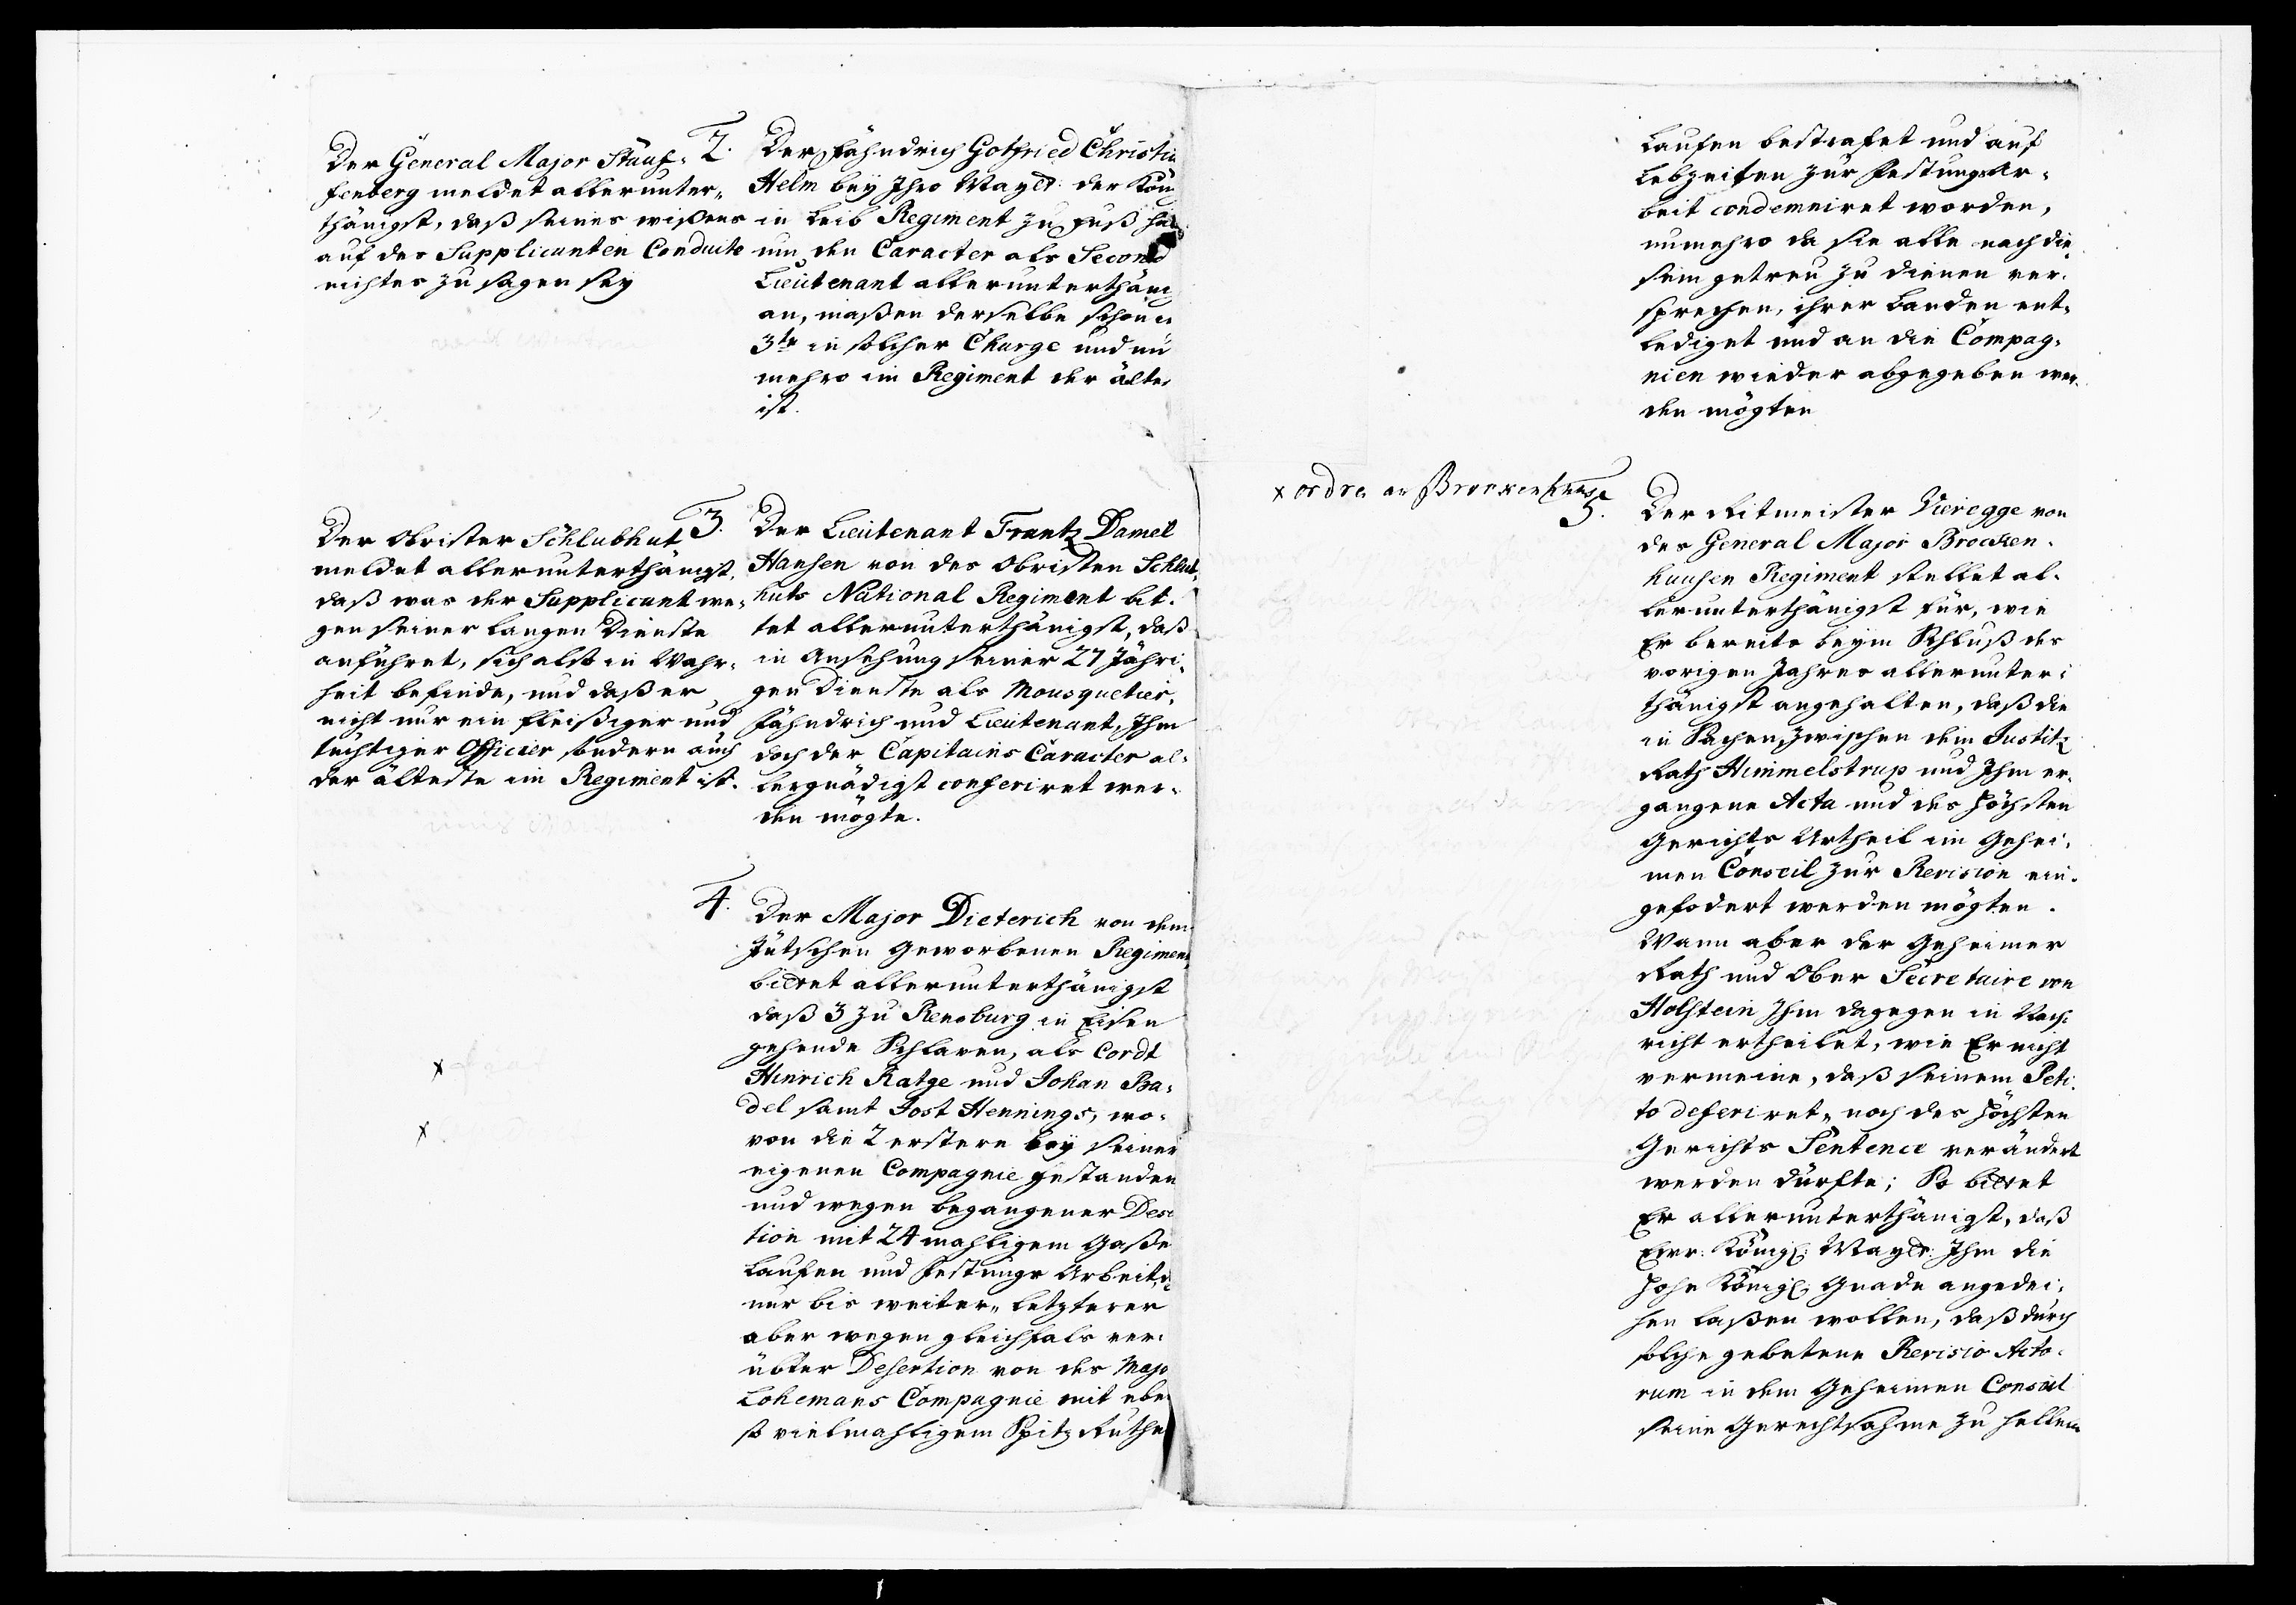 Der General Major Stauf-
fenberg meldet allerunter-
thänigst, daß seines wißens
auf des Supplicanten Conduite
nichtes zu sagen sey
2.
Der Fähndrich Gotfried Christi
Helm bey Ihro Mayt: der Kön
in Leib Regiment zu Fuß hä
um den Caracter als Second
Lieutenant allerunterthäni
an, maßen derselbe schon
3te in solcher Charge und nu
mehro im Regiment der älte
ist.
Der Obrister Schlubhut
meldet allerunterthänigst,
daß was der Supplicant we-
gen seiner langen Dienste
anführet, sich also in Wahr-
heit befinde, und daß er
nicht nur ein fleißiger und
tüchtiger Officier sondern auch
der älteste im Regiment ist.
3.
Der Lieutenant Frantz Daniel
Hansen von des Obristen Schlub-
huts National Regiment bit-
tet allerunterthänigst, daß
in Ansehung seiner 27 Jähri-
gen Dienste als Mousquetier,
Fähndrich und Lieutenant, Ihm
doch der Capitains Caracter al-
lergnädigst conferiret wer-
den mögte.
4.
Der Major Dieterich von dem
Jütschen Geworbenen Regiment
bittet allerunterthänigst
daß 3 zu Rensburg in Eisen
gehende Schlaven, als Cordt
Hinrich Ratge und Johan Ba-
del samt Jost Hennings, wo-
von die 2 erstere bey seiner
eigenen Compagnie gestanden
und wegen begangener Deser
tion mit 24 mahligem Gaße
Laufen und Festungs Arbeit,
nur bis weiter, letzterer
aber wegen gleichfals ver-
übter Desertion von des Majo
Lohemans Compagnie mit eben
so vielmahligem Spitz Ruthe
x
x
Laufen bestrafet und auf
Lebzeiten zur Festungs Ar-
beit condemniret worden,
nunmehro da sie alle nach die-
sem getreu zu dienen ver-
sprechen, ihrer Banden ent-
lediget und an die Compag-
nien wieder abgegeben wer-
den mögten
x ordre an Brockenhuus
5.
Der Ritmeister Vieregge von
des General Major Brocken-
huusen Regiment stellet al-
lerunterthänigst für, wie
Er bereits beym Schluß des
vorigen Jahres allerunter-
thänigst angehalten, daß die
in Sachen zwischen dem Justitz
Rath Himmelstrup und Ihm er-
gangene Acta und des Höchsten
Gerichts Urtheil im Gehei-
men Conseil zur Revision ein-
gefodert werden mögten.
Wann aber der Geheimer
Rath und Ober Secretaire von
Holstein Ihm dagegen in Nach-
richt ertheilet, wie Er nicht
vermeine, daß seinem Peti-
to deferiret, noch des Höchsten
Gerichts Sentence verändert
werden dürfte; So bittet
Er allerunterthänigst, daß
Ewr: Königl: Mayt: Ihm die
Hohe Königl: Gnade angedei-
hen laßen wollen, daß durch
solche gebetene Revisio Acto-
rum in dem Geheimen Conseil
seine Gerechtsahme zu hellem